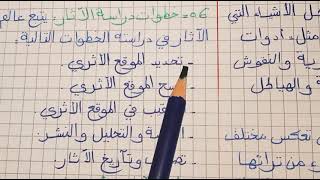 05 - خطوات دراسة الآثار: يتبع عالم
الآثار في دراسته الخطوات التالية:
- تحديد الموقع الأثري
الموقع الأثري
في الموقع الأثري
والتحليل والنشر.
وتأريخ الآثار.
الأشياء التي
مثل: أدوات
والنقوش
والهياكل
تعكس مختلف
من تراثها